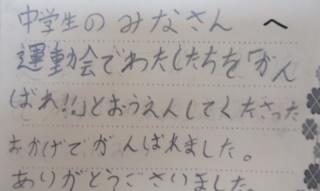 中学生のみなさんへ
運動会でわたしたちを「がん
ばれ!!」とおうえんしてくださった
おかげでがんばれました。
ありがとうございました。